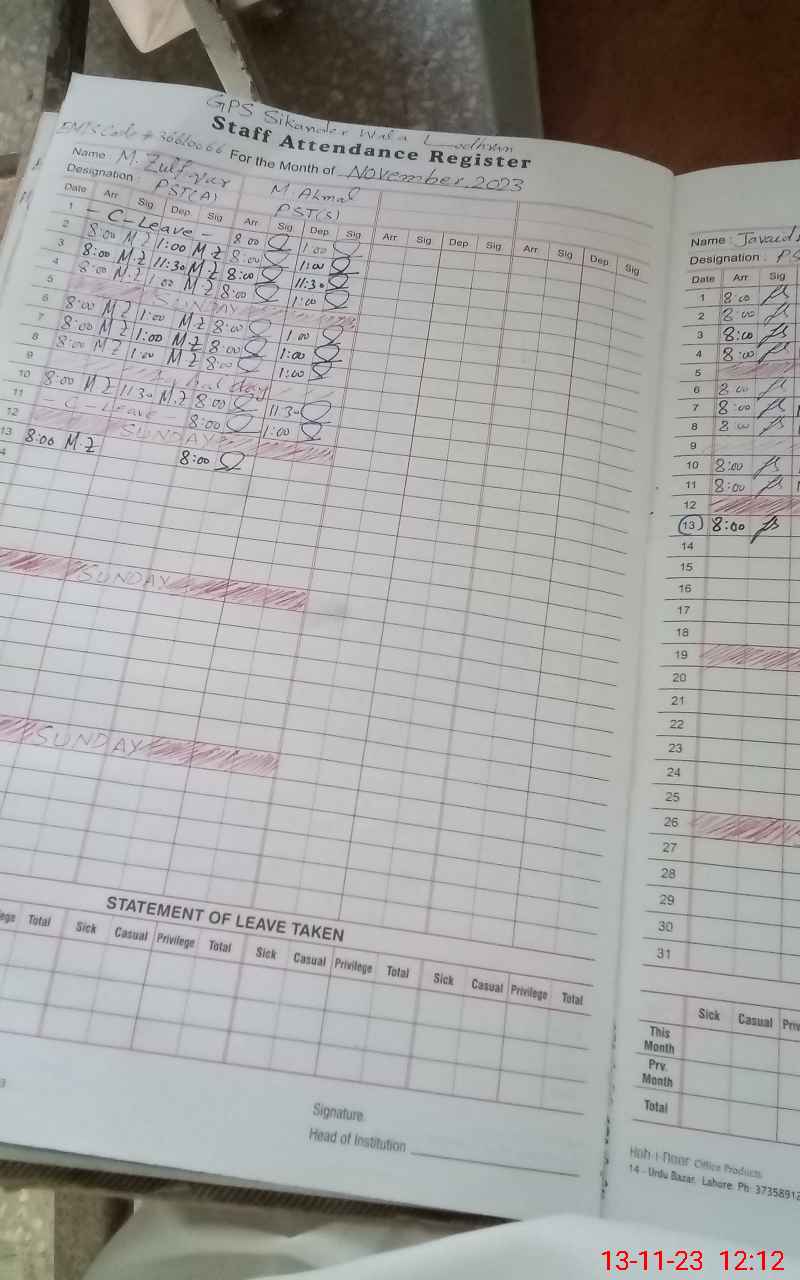 GPS Sikander Wala Lodhran
EMIS Code # 36610066
Staff Attendance Register
For the Month of November, 2023
Name : M. Zulfqar M Akmal
Designation : PST(A) PST(S)
Date Arr Sig Dep Sig Arr Sig Dep Sig Arr Sig Dep Sig Arr Sig Dep Sig
1 - C-Leave - 8:00 1:00
2 8:00 M.Z 1:00 M.Z 8:00 1:00
3 8:00 M.Z 11:30 M.Z 8:00 11:30
4 8:00 M.Z 1:00 M.Z 8:00 1:00
5 SUNDAY
6 8:00 M.Z 1:00 M.Z 8:00 1:00
7 8:00 M.Z 1:00 M.Z 8:00 1:00
8 8:00 M.Z 1:00 M.Z 8:00 1:00
9
10 8:00 M.Z 11:30 M.Z 8:00 11:30
11 C-Leave 8:00 1:00
12 SUNDAY
13 8:00 M.Z 8:00
SUNDAY
SUNDAY
STATEMENT OF LEAVE TAKEN
Total Sick Casual Privilege Total Sick Casual Privilege Total Sick Casual Privilege Total
Signature
Head of Institution
Name : Javaid
Designation :
Date Arr Sig
1 8:00
2 8:00
3 8:00
4 8:00
5
6 8:00
7 8:00
8 8:00
9
10 8:00
11 8:00
12
13 8:00
14
15
16
17
18
19
20
21
22
23
24
25
26
27
28
29
30
31
Sick Casual
This Month
Prv. Month
Total
Koh-i-Noor Office Products
14 - Urdu Bazar, Lahore. Ph: 3735891
13-11-23 12:12